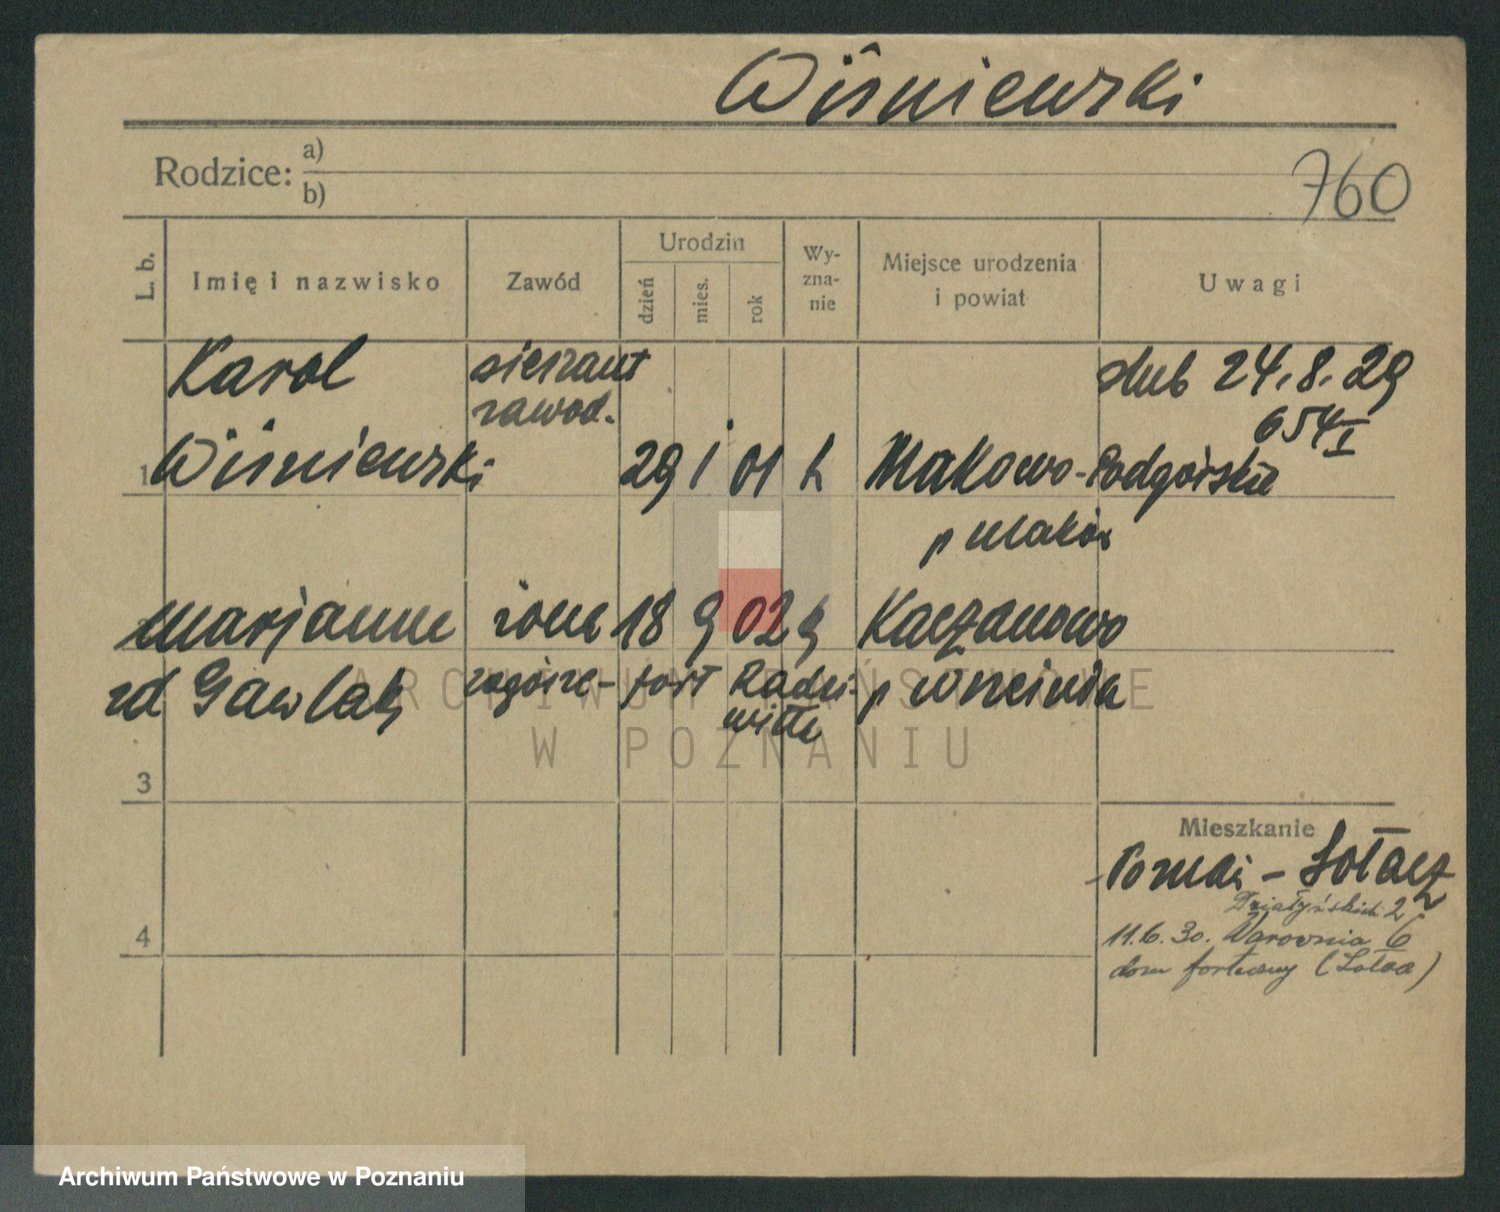 Wiśniewski
Rodzice: a)
b)
760
L. b.
Imię i nazwisko
Zawód
Urodzin
dzień
mies.
rok
Wy-
zna-
nie
Miejsce urodzenia
i powiat
Uwagi
Karol
sierżant
zawod.
ślub 24.8.29
654 I
1 Wiśniewski 29 1 01 k Makowo-Podgórskie
p Maków
Marjanna żona 18 9 02 k Kaczanowo
zd Gawlak zagórze- fort Radzi- p września
wiłła
3
Mieszkanie
Poznań - Sołacz
Działyńskich 2
4
11.6.30. Warownia 6
dom forteczny (Sołacz)
ARCHIWUM PAŃSTWOWE
W POZNANIU
Archiwum Państwowe w Poznaniu